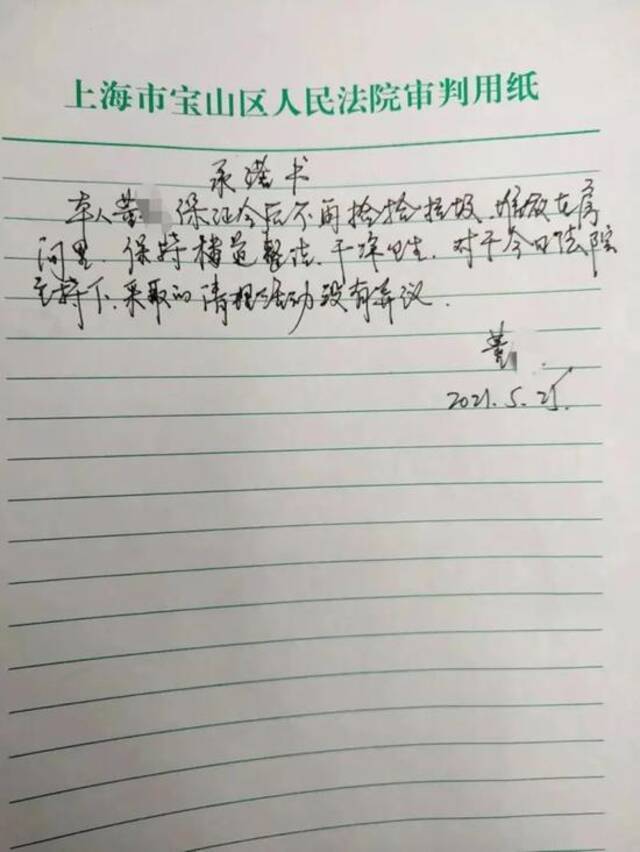 上海市宝山区人民法院审判用纸
承诺书
本人黄 保证今后不再捡拾垃圾、堆放在房
间里、保持楼道整洁、干净卫生、对于今日法院
主持下、采取的清理活动没有异议.
黄
2021.5.25.